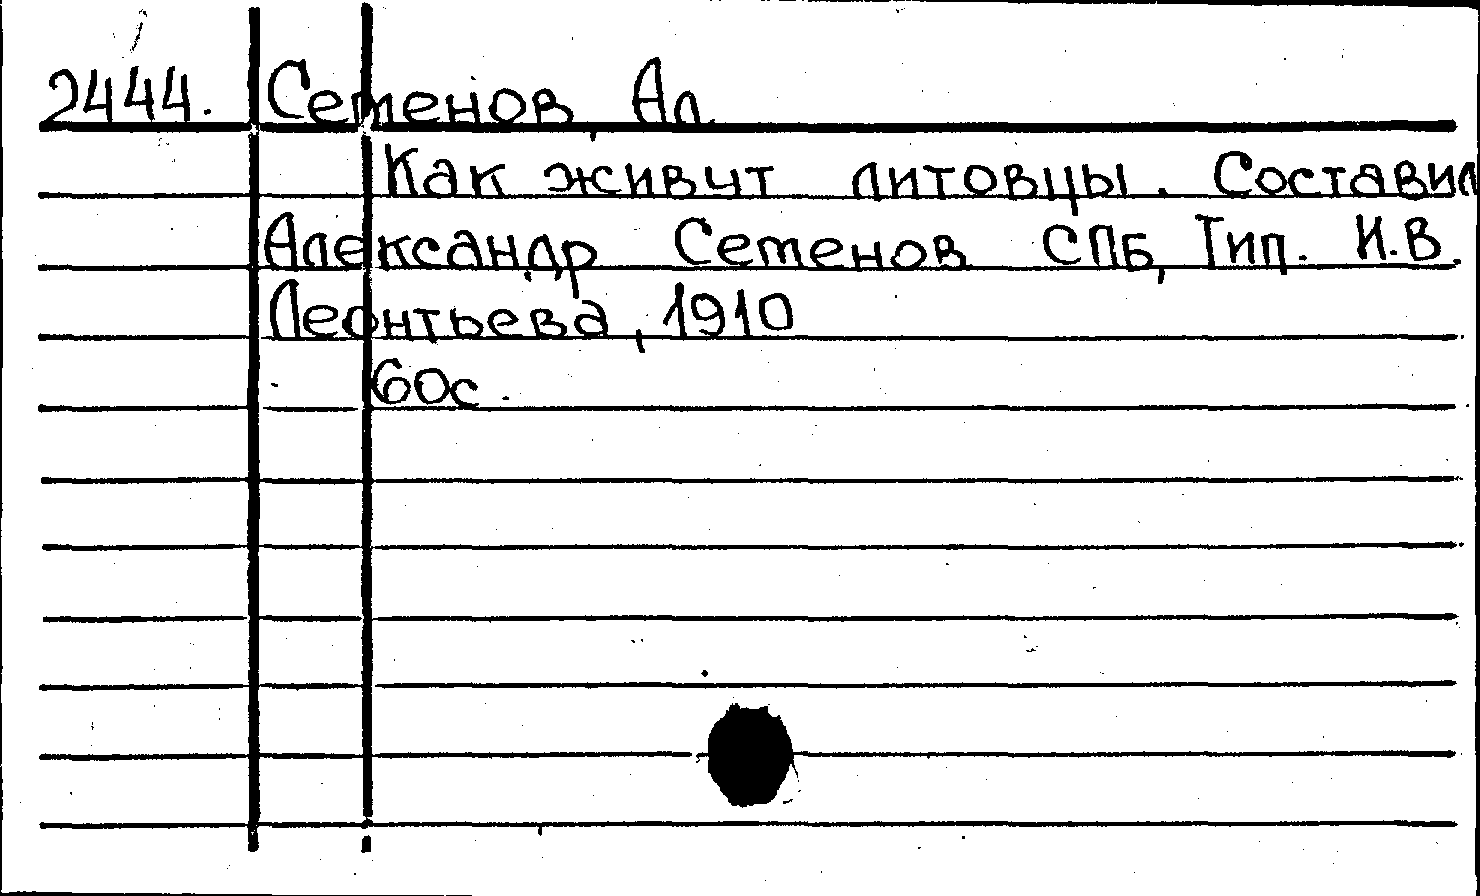 2444. Семенов, Ал.
Как живут литовцы. Составил
Александр Семенов СПБ, Тип. И.В.
Леонтьева, 1910
60с.